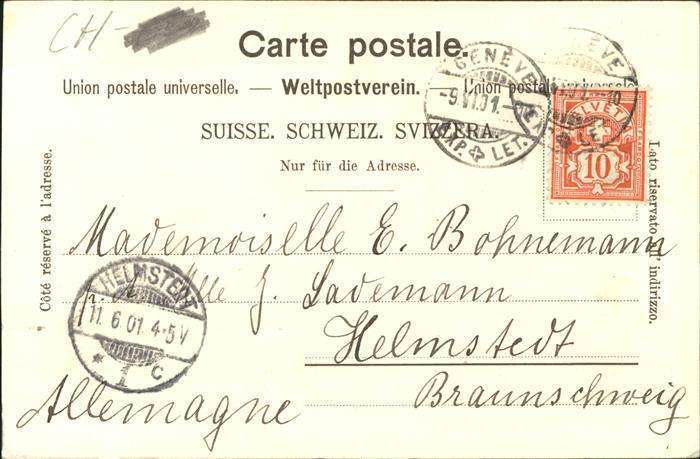 CH-
Carte postale.
Union postale universelle. — Weltpostverein. — Union postale universale
SUISSE. SCHWEIZ. SVIZZERA.
Nur für die Adresse.
Côté réservé à l'adresse.
Lato riservato all' indirizzo.
GENÈVE
-9.VI.01.-
EXP. LET.
HELVETIA
10
Mademoiselle E. Bohnemann
Mlle J. Lademann
Helmstedt
Braunschweig
Allemagne
HELMSTEDT
11.6.01.4-5V
* 1 c